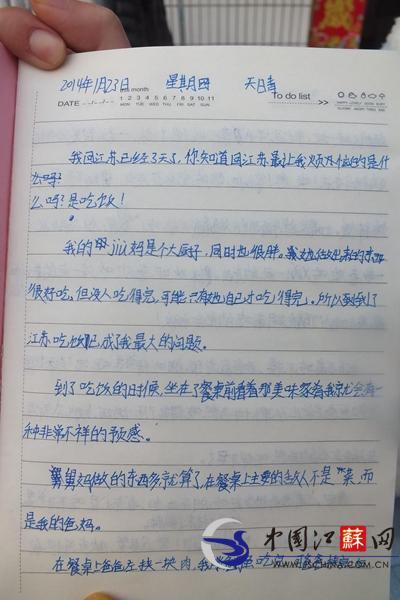 2014年1月23日 星期四 天晴
this month
1 2 3 4 5 6 7 8 9 10 11
To do list >>
DATE
MON TUE WED THU FRI SAT SUN
HAPPY LOVELY SOSO BUSY
我回江苏已经3天了,你知道回江苏最让我烦恼的是什
么吗?是吃饭!
我的jiù妈是个大厨子,同时也很胖。她做出来的东西
很好吃,但没人吃得完,可能只有她自己才吃得完。所以到了
江苏吃饭已成了我最大的问题。
到了吃饭的时候,坐在了餐桌前看着那美味家肴我就会有一
种非常不祥的预感。
舅妈做的东西多就算了,在餐桌上主要的敌人不是“菜,而
是我的爸妈。
在餐桌上爸爸左挟一块肉,我
中国江蘇网
JSCHINA.COM.CN